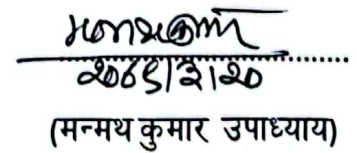 २०७९|३|२०
(मन्मथ कुमार उपाध्याय)